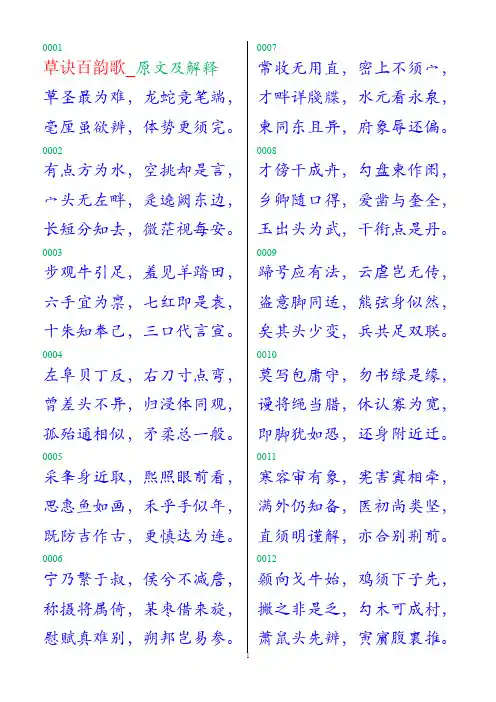 0001
草诀百韵歌_原文及解释
草圣最为难，龙蛇竞笔端，
毫厘虽欲辨，体势更须完。
0002
有点方为水，空挑却是言，
宀头无左畔，辵遶阙东边，
长短分知去，微茫视每安。
0003
步观牛引足，羞见羊踏田，
六手宜为禀，七红即是袁，
十朱知奉己，三口代言宣。
0004
左阜贝丁反，右刀寸点弯，
曾差头不异，归浸体同观，
孤殆通相似，矛柔总一般。
0005
采夆身近取，熙照眼前看，
思惠鱼如画，禾乎手似年，
既防吉作古，更慎达为连。
0006
宁乃繁于叔，侯兮不减詹，
称摄将属倚，某枣借来旋，
慰赋真难别，朔邦岂易参。
0007
常收无用直，密上不须宀，
才畔详牋牒，水元看永泉，
柬同东且异，府象辱还偏。
0008
才傍干成卉，勾盘柬作阑，
乡卿随口得，爱凿与奎全，
玉出头为武，干衔点是丹。
0009
蹄号应有法，云虐岂无传，
盗意脚同适，熊弦身似然，
矣其头少变，兵共足双联。
0010
莫写包庸守，勿书绿是缘，
谩将绳当腊，休认寡为宽，
即脚犹如恐，还身附近迁。
0011
寒容审有象，宪害寘相牵，
满外仍知备，医初尚类坚，
直须明谨解，亦合别荆前。
0012
颡向戈牛始，鸡须下子先，
撇之非是乏，勾木可成村，
萧鼠头先辨，寅宾腹里推。
1